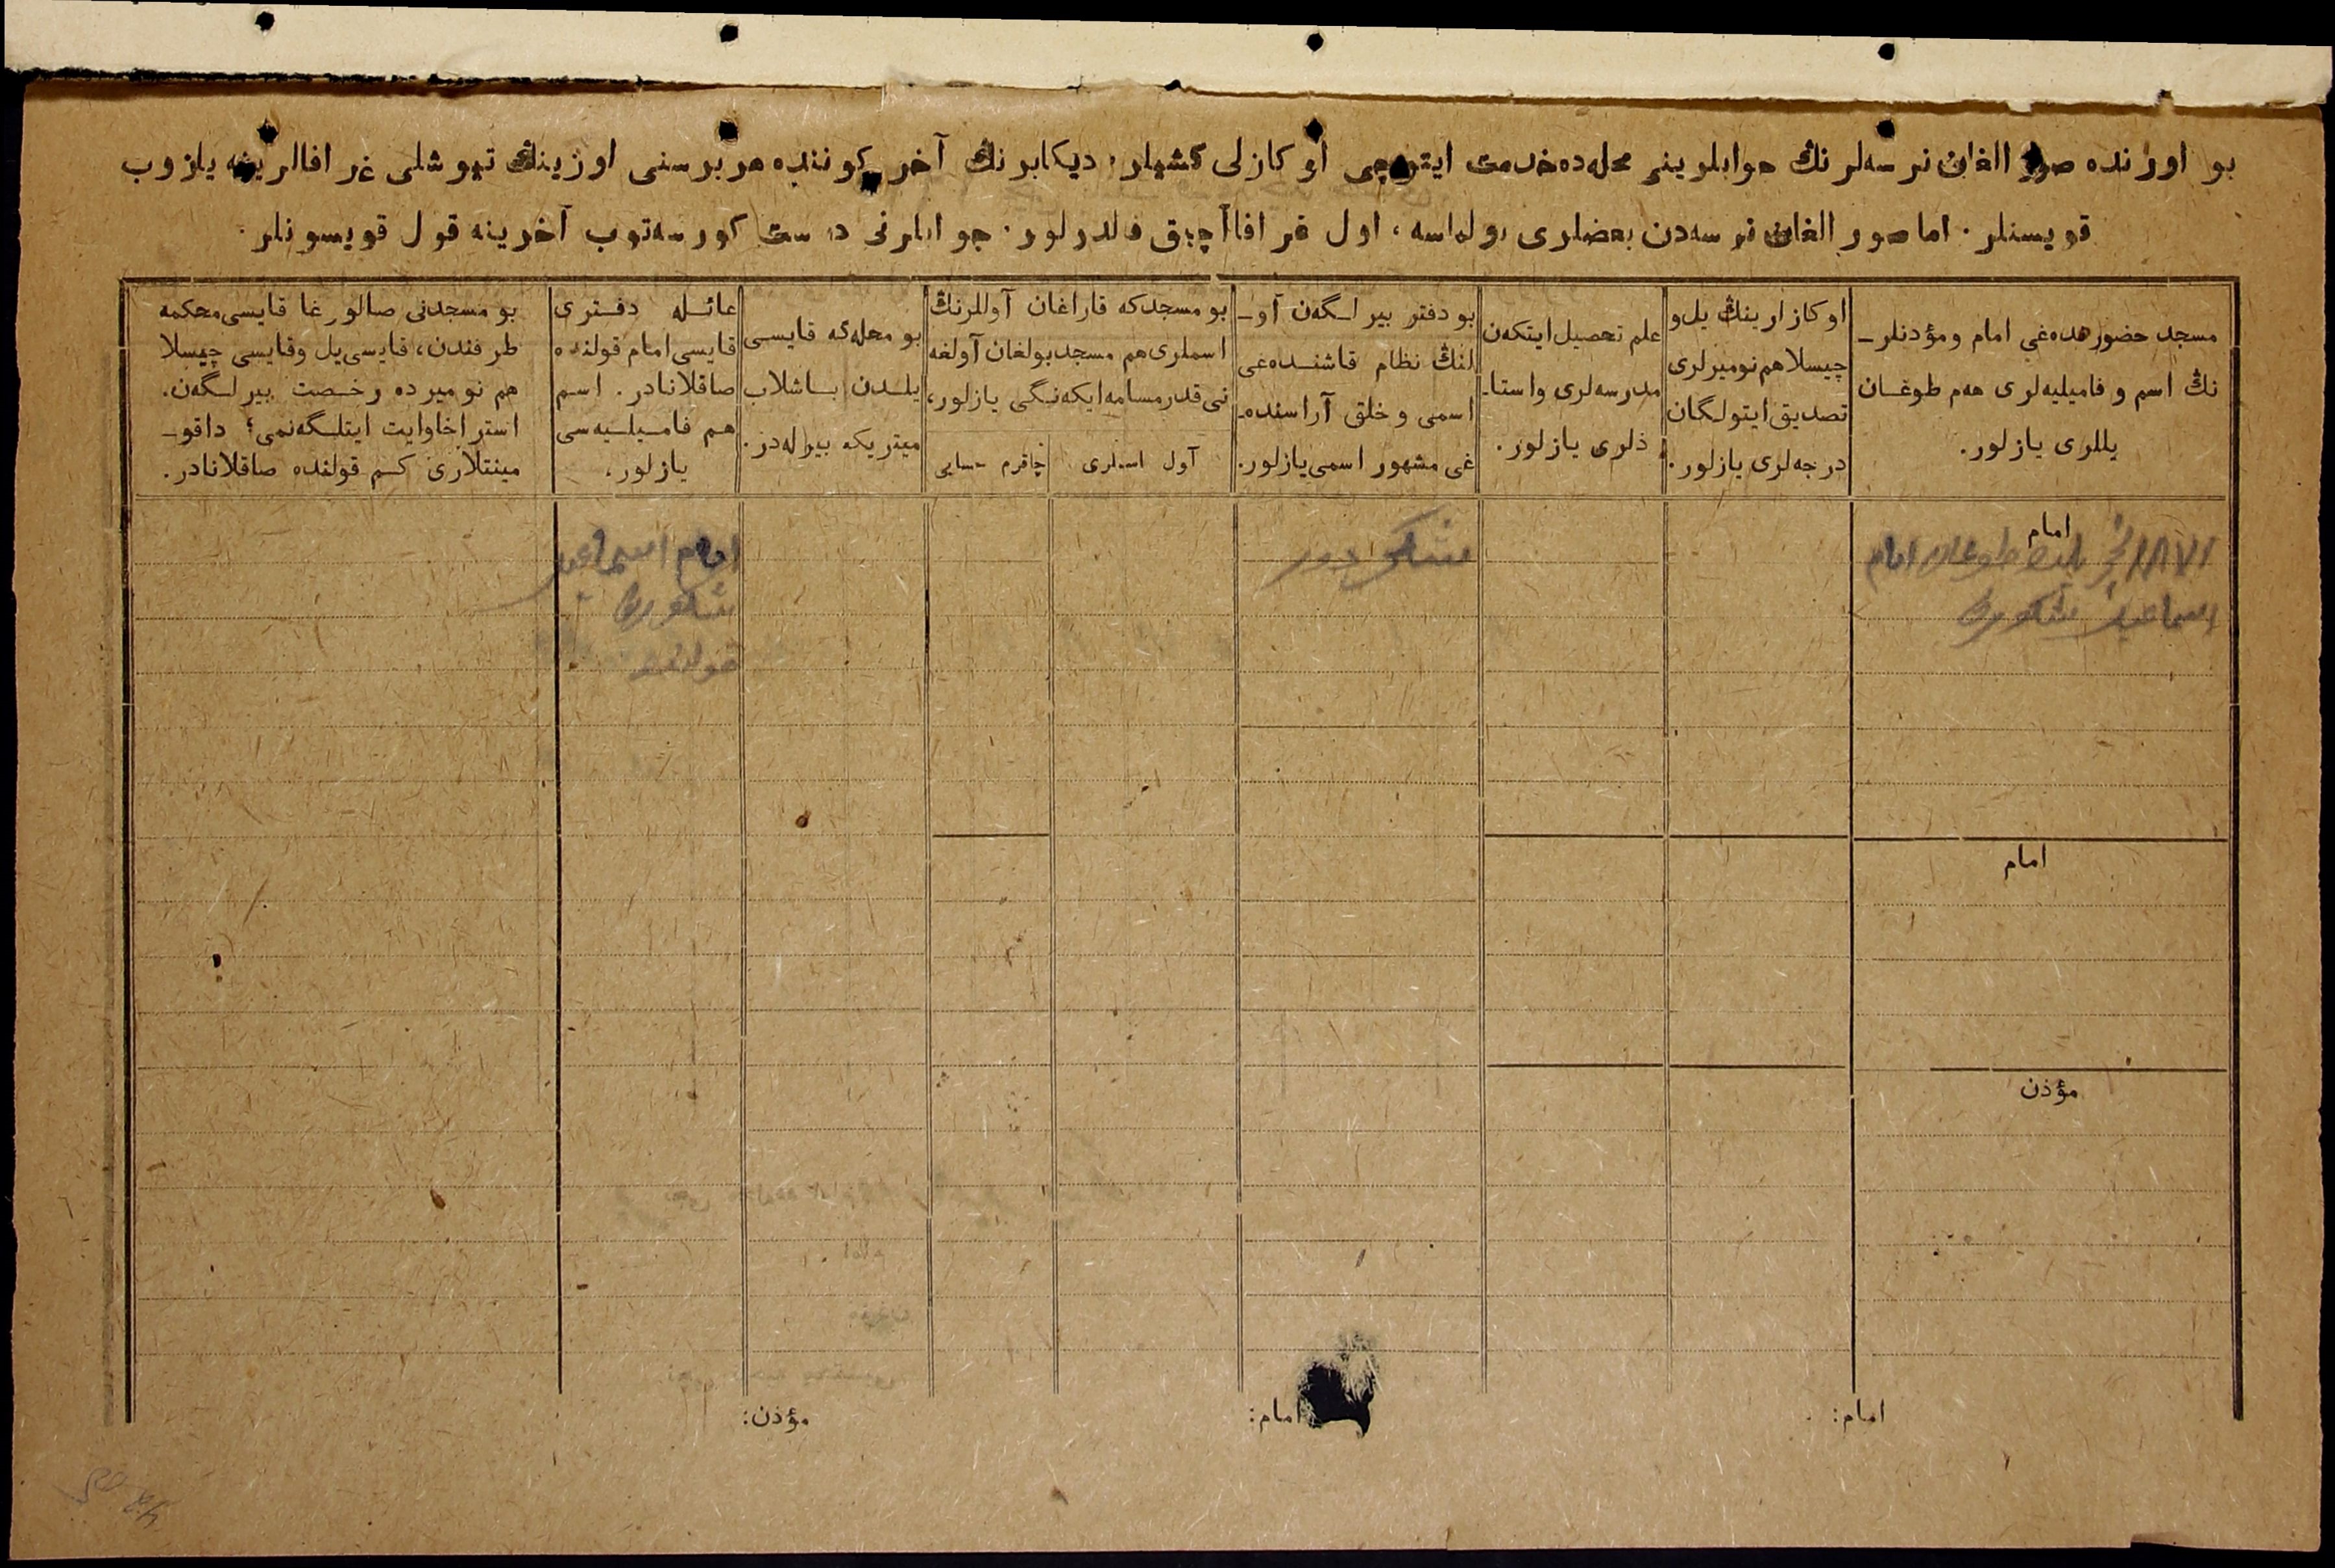 بو اورنده صور الغان نرسه‌لرنڭ جوابلرینی محله‌ده خدمت ایتوچی اوکازلی کشیلر، دیکابرنڭ آخر کوننده هر برسنی اوزینڭ تیوشلی غرافالرینه یازوب
قویسنلر. اما صور الغان نرسه‌دن بعضلری بولماسه، اول غرافا آچیق قالدرلور. جوابلرنی درست کورسه‌توب آخرینه قول قویسونلر.
مسجد حضورهده‌غی امام ومؤذنلر-
نڭ اسم و فامیلیه‌لری هەم طوغان
یللری یازلور.
اوکازلرینڭ یل و
چیسلا هم نومیرلری
تصدیق ایتولگان
درجه‌لری یازلور.
علم تحصیل ایتکەن
مدرسه‌لری واستا-
ذلری یازلور.
بو دفتر بیرلگەن آو-
لنڭ نظام قاشنده‌غی
اسمی وخلق آراسنده-
غی مشهور اسمی یازلور.
بو مسجدکه قاراغان آوللرنڭ
اسملری هم مسجد بولغان آولغه
نی قدر مسافه ایکه‌نگی یازلور،
آول اسملری
چاقرم حسابی
بو محله‌گه قایسی
یلدن باشلاب
میتریکه بیرله‌در.
عائله دفتری
قایسی امام قولنده
صاقلانادر. اسم
هم فامیلیه‌سی
یازلور.
بو مسجدنی صالورغا قایسی محکمه
طرفندن، قایسی یل وقایسی چیسلا
هم نومیرده رخصت بیرلگەن.
استراخاوایت ایتلگەنمی؟ داقو-
مینتلاری کم قولنده صاقلانادر.
امام
طوغان امام
اسماعیل
امام اسماعیل
قولنده
امام
مؤذن
امام:
امام:
مؤذن: